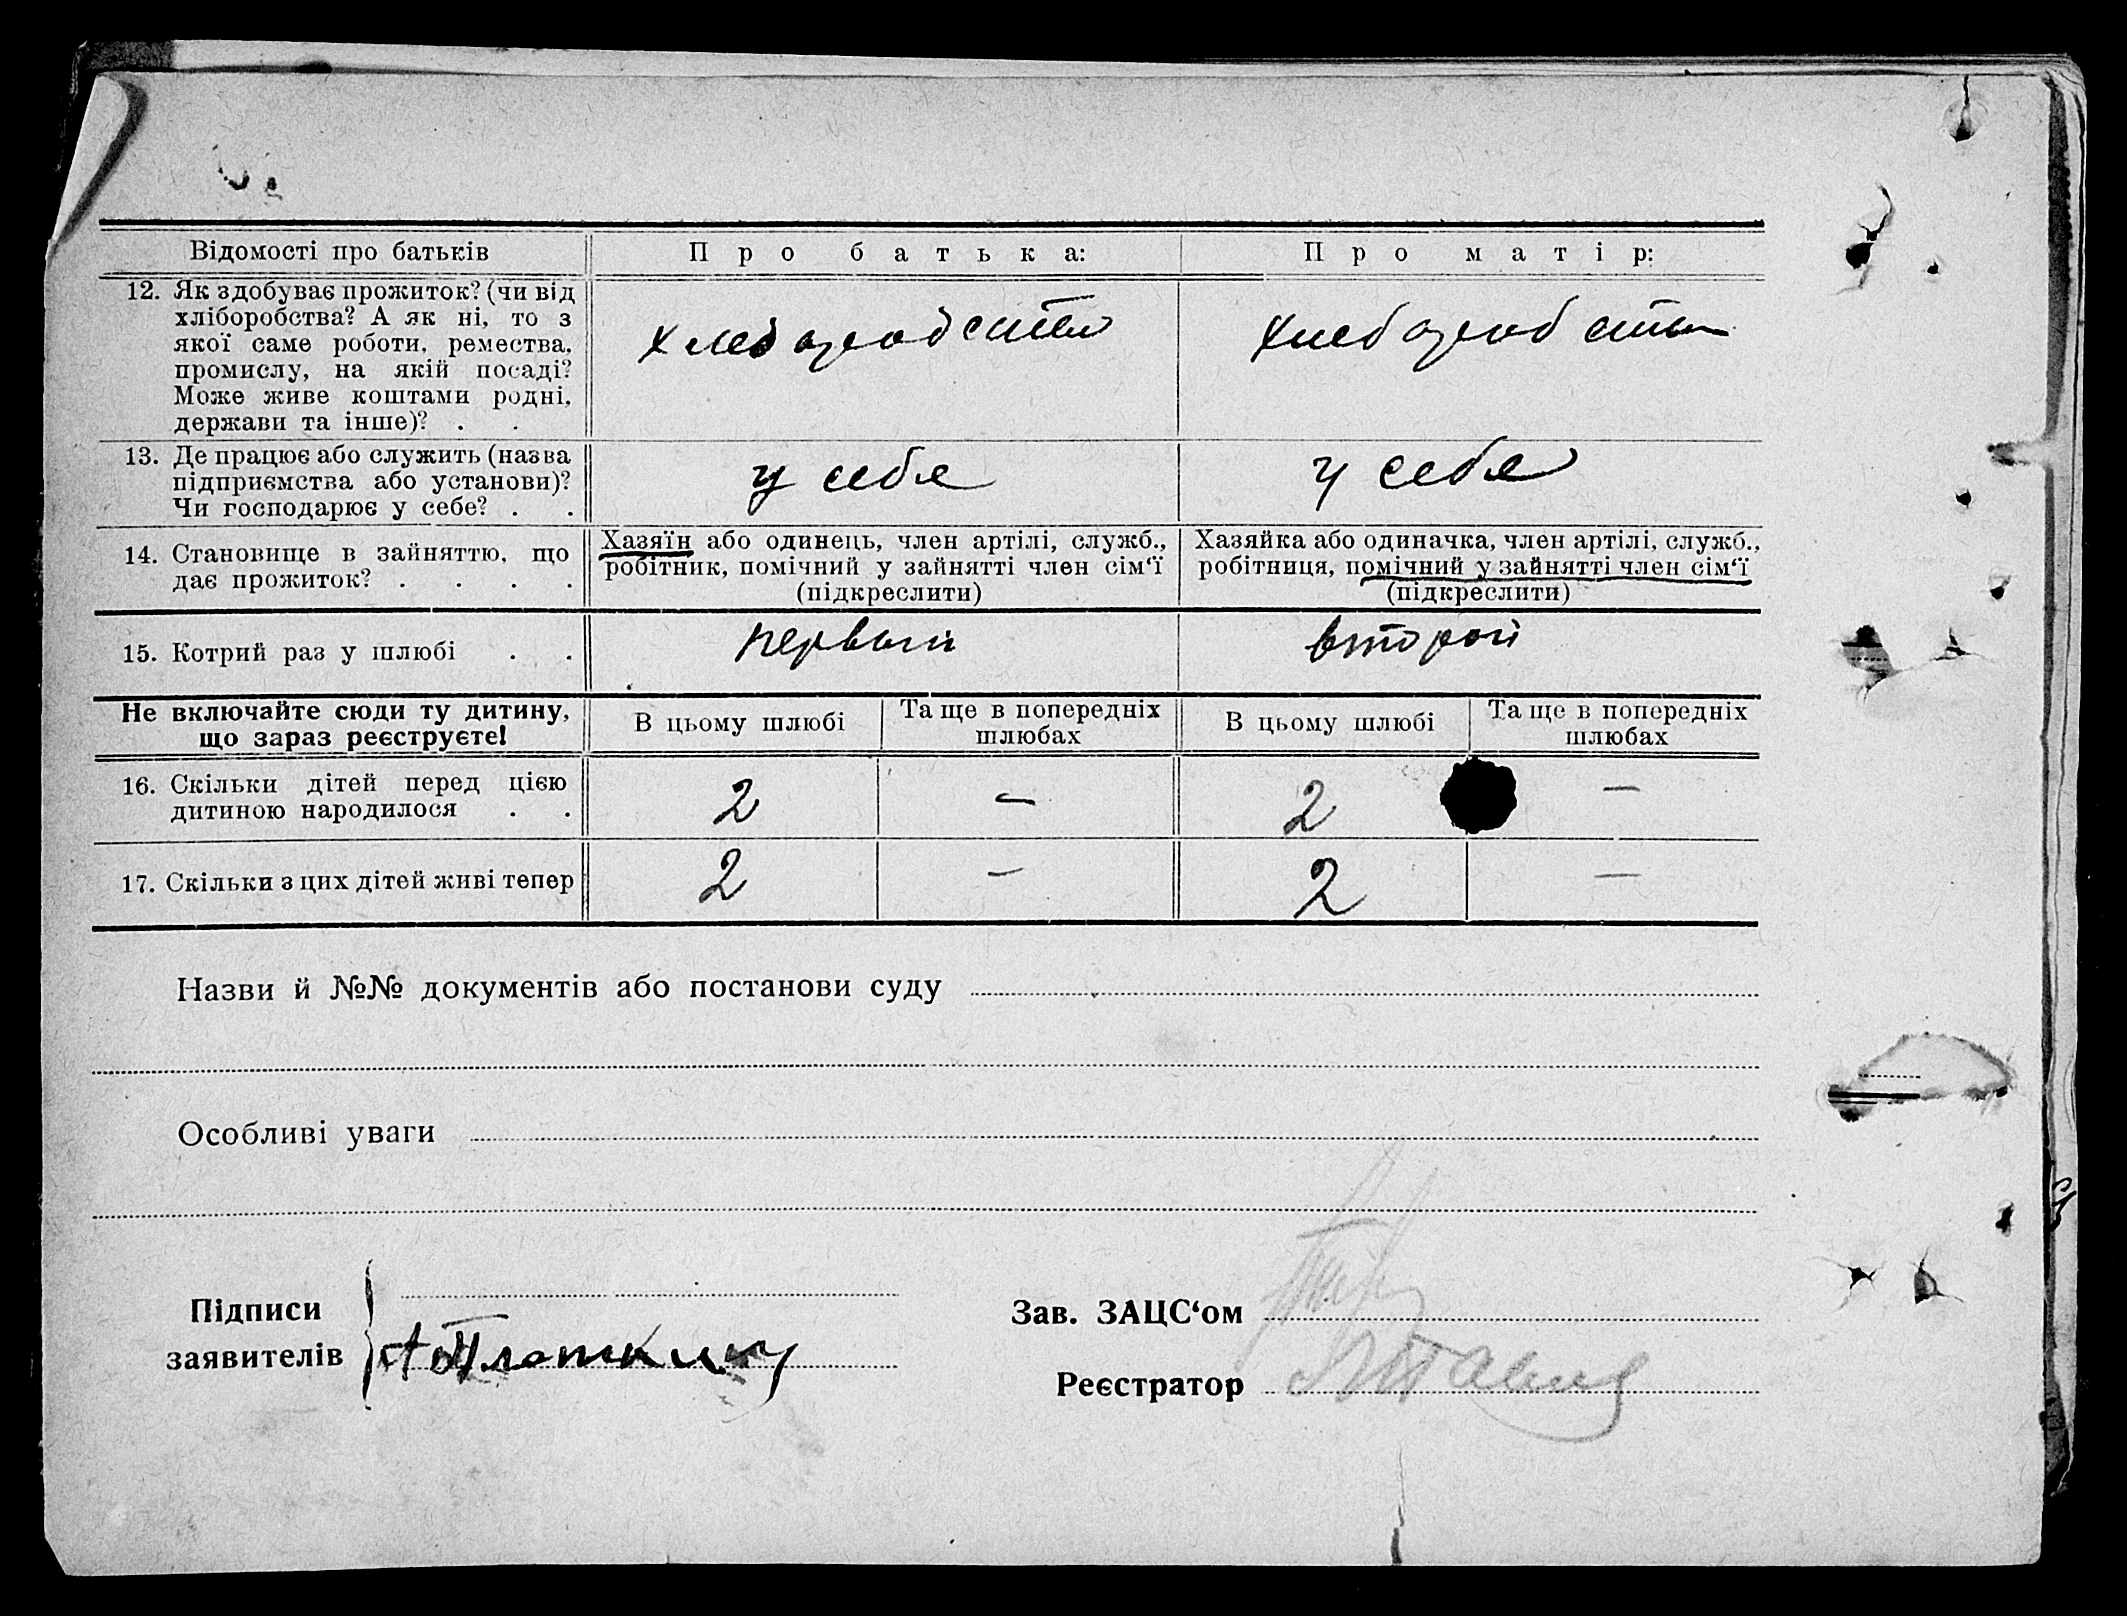 Відомості про батьків Про батька: Про матір:
12. Як здобуває прожиток? (чи від
хліборобства? А як ні, то з
якої саме роботи, ремества,
промислу, на якій посаді?
Може живе коштами родні,
держави та інше)? . .
хлеборобство хлеборобство
13. Де працює або служить (назва
підприємства або установи)?
Чи господарює у себе? . .
у себя у себя
14. Становище в зайняттю, що
дає прожиток? . . . .
Хазяїн або одинець, член артілі, служб.,
робітник, помічний у зайнятті член сім‘ї
(підкреслити)
Хазяйка або одиначка, член артілі, служб.,
робітниця, помічний у зайнятті член сім‘ї
(підкреслити)
15. Котрий раз у шлюбі . . первый второй
Не включайте сюди ту дитину,
що зараз реєструєте!
В цьому шлюбі
Та ще в попередніх
шлюбах
В цьому шлюбі
Та ще в попередніх
шлюбах
16. Скільки дітей перед цією
дитиною народилося . .
2 — 2 —
17. Скільки з цих дітей живі тепер 2 — 2 —
Назви й №№ документів або постанови суду
Особливі уваги
Підписи
заявителів
Зав. ЗАЦС‘ом
Реєстратор